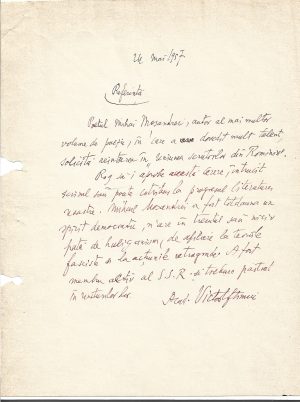 24 mai 1957
Referință
Poetul Mihai Moșandrei, autor al mai multor
volume de poezie, în care a dovedit mult talent
solicită reintrarea în Uniunea scriitorilor din Romînia.
Rog a-i aproba această cerere, întrucît
scrisul său poate contribui la progresul literaturii
noastre. Mihail Moșandrei a fost totdeauna un
spirit democratic, n'are în trecutul său nicio
pată de huliganism, de afiliere la teoriile
fasciste și la acțiunile retrograde. A fost
membru activ al S.S.R. și trebuie păstrat
în rîndurile lor.
Acad. Victor Eftimiu